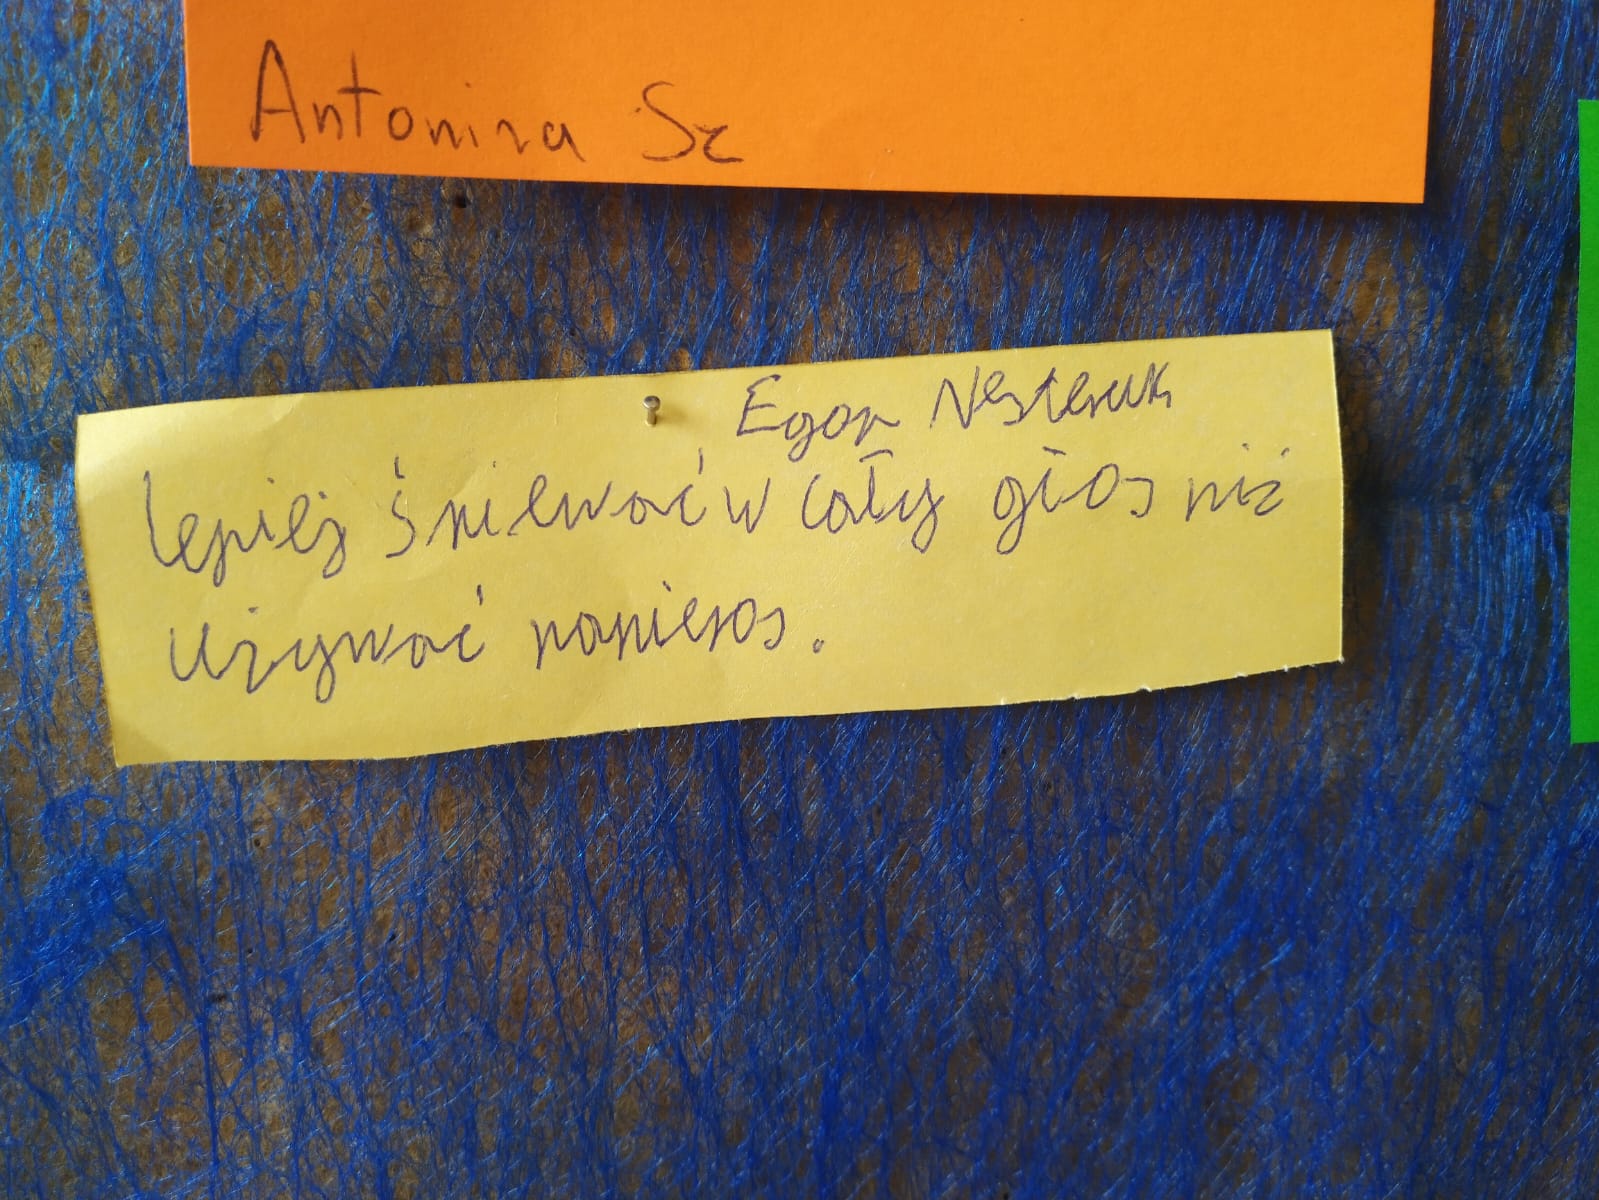 Antonina Sz
Egor Nesteruk
lepiej śpiewać w cały głos niż
używać papieros.